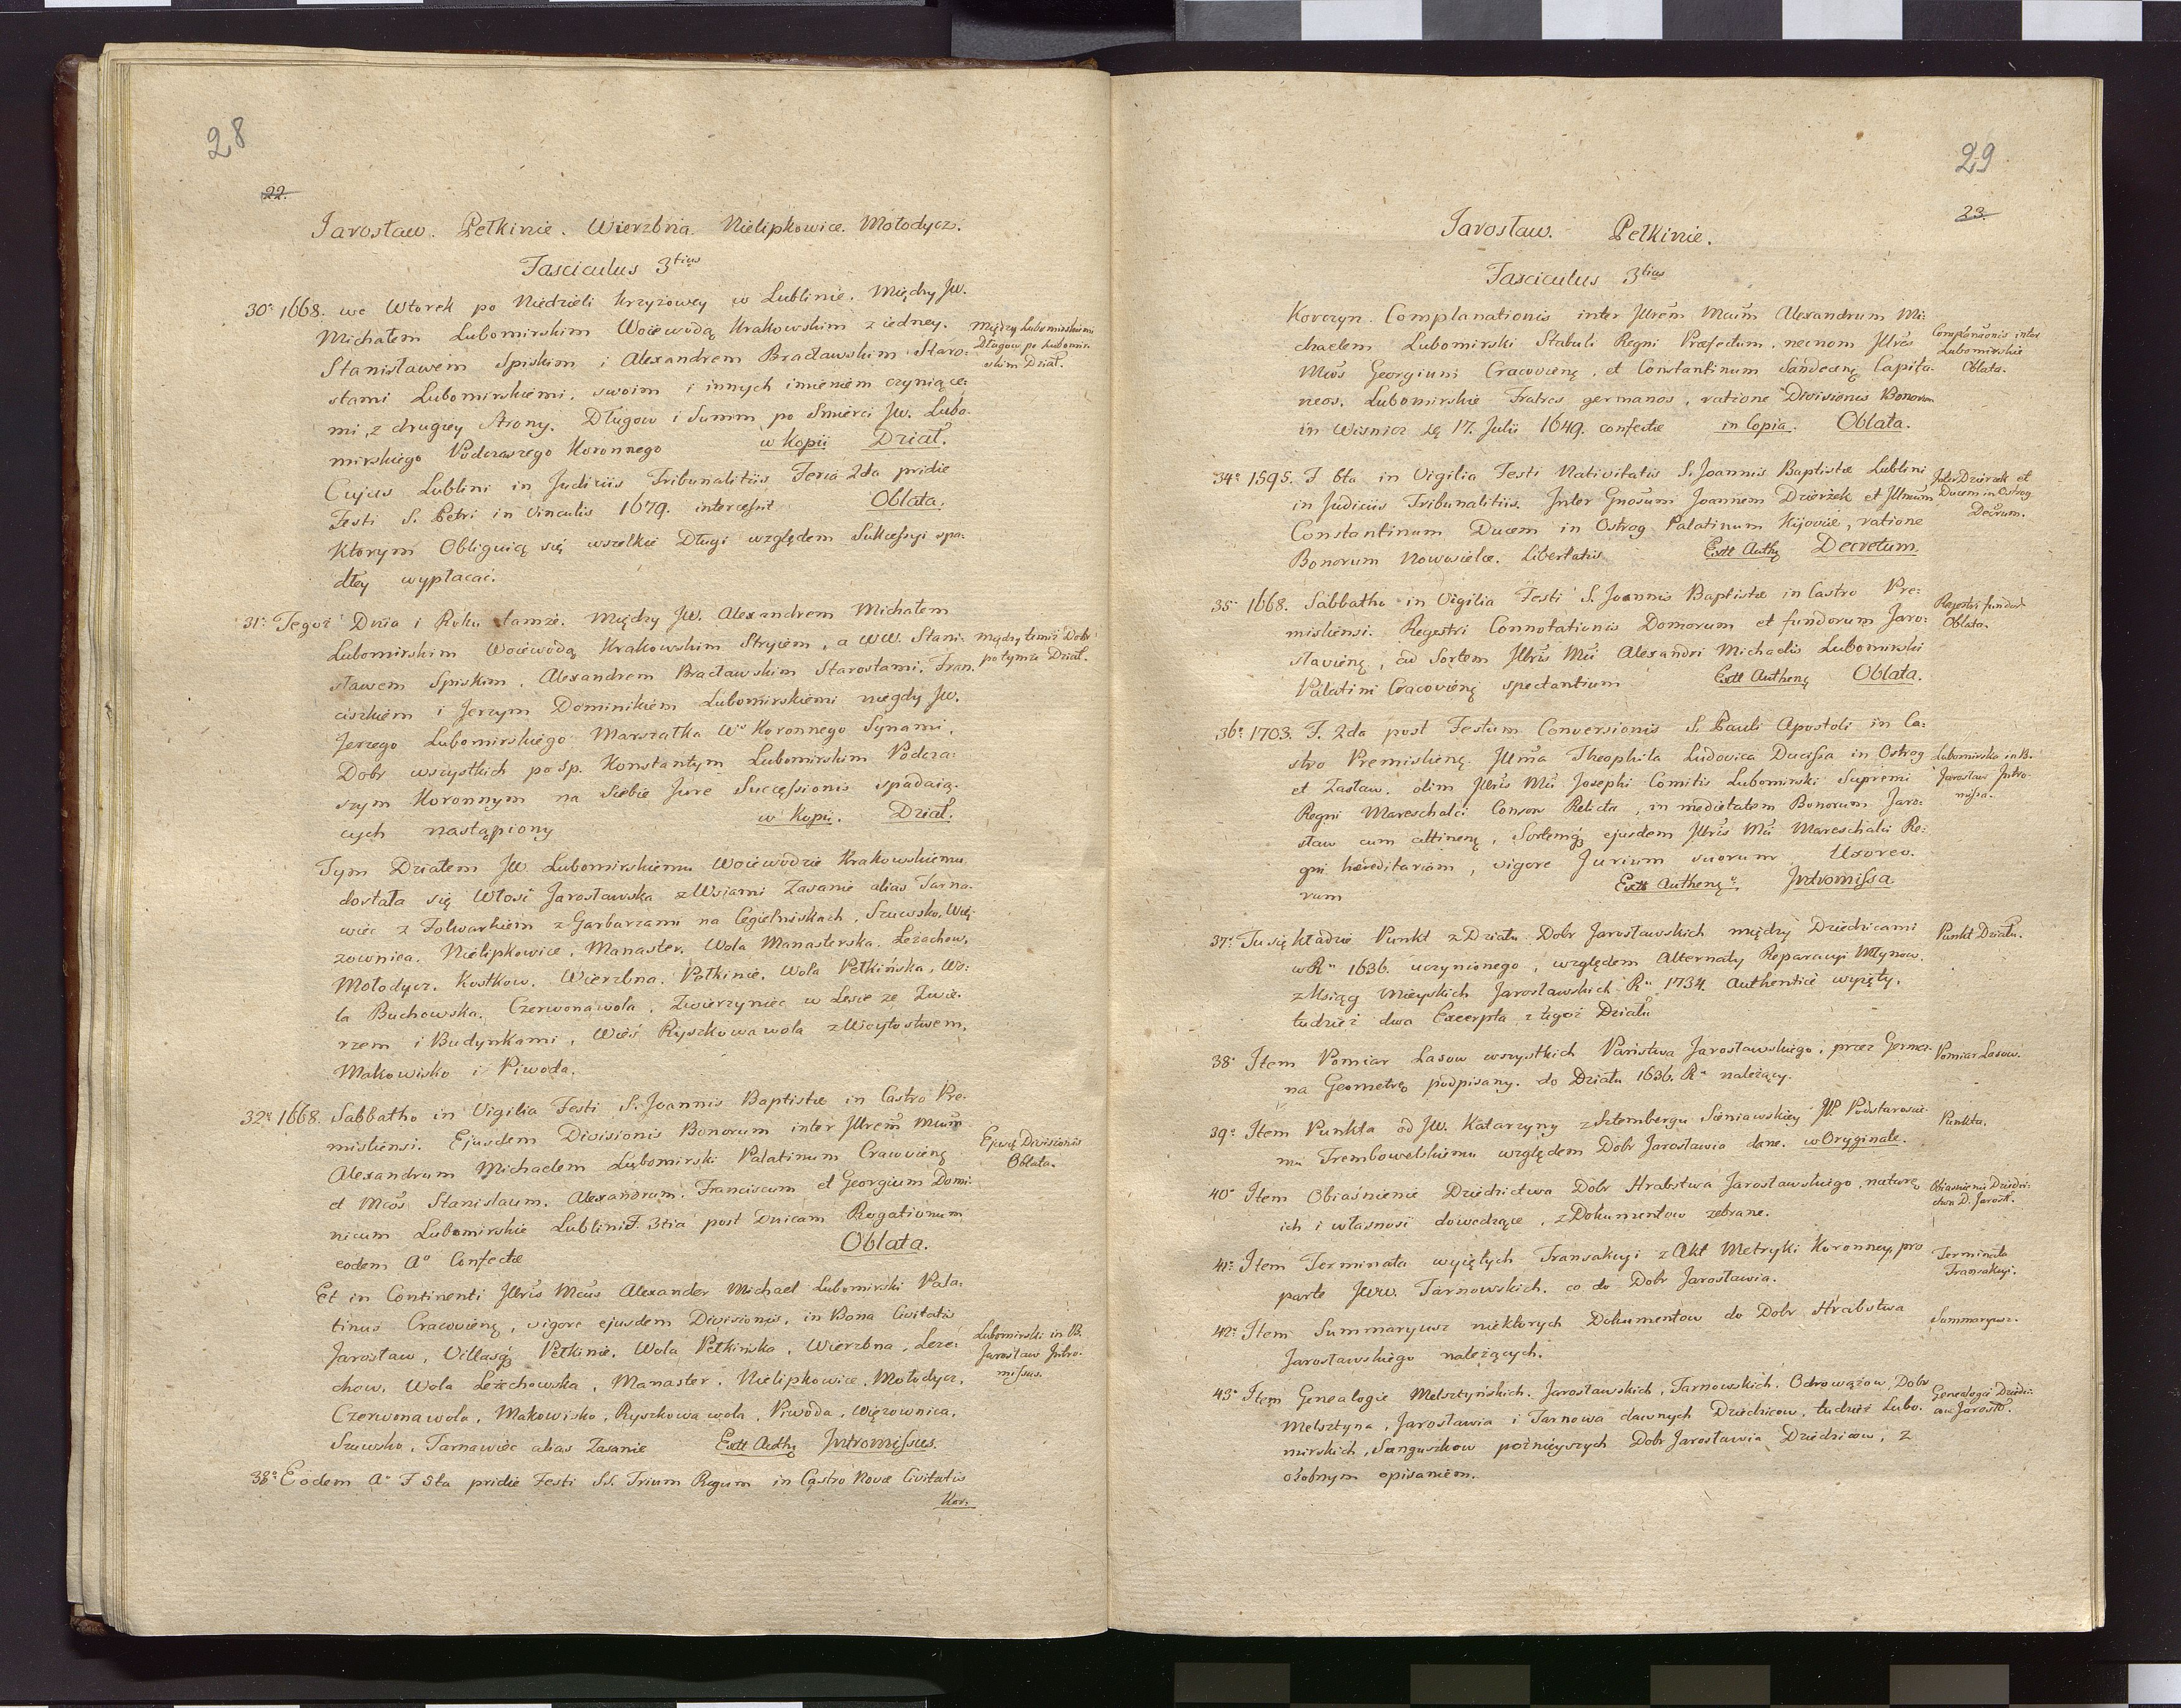 28
22.
Jarosław. Pełkinie. Wierzbna. Nielipkowice. Mołodycz.
Fasciculus 3tius
30o 1668. we Wtorek po Niedzieli Krzyżowey w Lublinie. Między JW.
Michałem Lubomirskim Woiewodą Krakowskim z iedney.
Stanisławem Spiskim i Alexandrem Bracławskim Staro:
stami Lubomirskiemi, swoim i innych imieniem czyniące:
mi, z drugiey Strony. Długow i Summ po Smierci JW. Lubo-
mirskiego Podczaszego Koronnego w Kopii Dział.
Między Lubomirskiemi
Długow po Lubomir-
skim Dział.
Cujus Lublini in Judiciis Tribunalitiis Feria 2da pridie
Festi S. Petri in Vinculis 1679. intercessit Oblata.
Ktorym Obliguią się wszelkie Długi względem Sukcessyi spa-
dłey wypłacać.
31o Tegoż Dnia i Roku tamże. Między JW. Alexandrem Michałem
Lubomirskim Woiewodą Krakowskim Stryiem, a WW. Stani-
sławem Spiskim, Alexandrem Bracławskim Starostami, Fran-
ciszkiem i Jerzym Dominikiem Lubomirskiemi niegdy JW.
Jerzego Lubomirskiego Marszałka Wo Koronnego Synami,
Dobr wszystkich po śp. Konstantym Lubomirskim Podcza:
szym Koronnym na Siebie Jure Successionis spadaią-
cych nastąpiony w Kopii. Dział.
między temiż Dobr
po tymże Dział.
Tym Działem JW. Lubomirskiemu Woiewodzie Krakowskiemu
dostała się Włość Jarosławska z Wsiami Zasanie alias Tarna-
wiec z Folwarkiem z Garbarzami na Cegielniskach, Szuwsko, Wię-
zownica, Nielipkowice, Manaster, Wola Manasterska, Leżachow,
Mołodycz, Kostkow, Wierzbna, Pełkinie, Wola Pełkińska, Wo:
la Buchowska, Czerwonawola, Zwierzyniec w Lesie ze Zwie-
rzem i Budynkami, Wieś Ryszkowa wola z Woytostwem,
Makowisko i Piwoda.
32o 1668. Sabbatho in Vigilia Festi S. Joannis Baptistæ in Castro Pre-
misliensi. Ejusdem Divisionis Bonorum inter Jllrem Mcum
Alexandrum Michaelem Lubomirski Palatinum Cracovien
et Mcos Stanislaum, Alexandrum, Franciscum et Georgium Domi-
nicum Lubomirskie Lublini F. 3tia post Dnicam Rogationum
eodem Ao Confectæ Oblata.
Ejusd Divisionis
Oblata.
Et in Continenti Jllris Mcus Alexander Michael Lubomirski Pala-
tinus Cracovien, vigore ejusdem Divisionis, in Bona Civitatis
Jarosław, Villasq Pełkinie, Wola Pełkińska, Wierzbna, Leże:
chow, Wola Leżechowska, Manaster, Nielipkowice, Mołodycz,
Czerwonawola, Makowisko, Ryszkowa wola, Piwoda, Więzownica,
Szuwsko, Tarnawiec alias Zasanie Extt Auth Intromissus.
Lubomirski in B.
Jarosław Intro-
missus.
33o Eodem Ao F 5ta pridie Festi SS. Trium Regum in Castro Novæ Civitatis
Kor.
29
23.
Jarosław. Pełkinie.
Fasciculus 3tius
Korczyn. Complanationis inter Jllrem Mcum Alexandrum Mi-
chaelem Lubomirski Stabuli Regni Præfectum, necnon Jllres
Mcos Georgium Cracovien, et Constantinum Sandecen Capita-
neos, Lubomirskie Fratres germanos, ratione Divisionis Bonorum
in Wisnicz 17. Julii 1649. confectæ in Copia. Oblata.
Complaneonis inter
Lubomirskie
Oblata.
34o 1595. F 6ta in Vigilia Festi Nativitatis S. Joannis Baptistæ Lublini
in Judiciis Tribunalitiis. Inter Gnosum Joannem Dzierżek et Jllmum
Constantinum Ducem in Ostrog Palatinum Kijoviæ, ratione
Bonorum Nowosielce. Libertatis Extt Auth Decretum.
Inter Dzierżek et
Ducem in Ostrog
Decrum.
35o 1668. Sabbatho in Vigilia Festi S. Joannis Baptistæ in Castro Pre:
misliensi. Regestri Connotationis Domorum et fundorum Jaro:
slavien, ad Sortem Jllris Mci Alexandri Michaelis Lubomirski
Palatini Cracovien spectantium Extt Authen Oblata.
Regestri fundor
Oblata.
36o 1703. F. 2da post Festum Conversionis S. Pauli Apostoli in Ca:
stro Premislien. Jllma Theophila Ludovica Ducissa in Ostrog
et Zasław, olim Jllris Mci Josephi Comitis Lubomirski Supremi
Regni Mareschalci Consors Relicta, in medietatem Bonorum Jaro:
sław cum attinen, Sortemq ejusdem Jllris Mci Mareschalci Re:
gni hæreditariam, vigore Jurium suorum Uxoreo-
rum Extt Authen Intromissa.
Lubomirska in B.
Jarosław Intro-
missa.
37o Tu się kładzie Punkt z Działu Dobr Jarosławskich między Dziedzicami
w Ru 1636. uczynionego, względem Alternaty Reparacyi Młynow,
z Ksiąg Mieyskich Jarosławskich Ru 1734. Authenticè wyięty,
tudzież dwa Excerpta z tegoż Działu
Punkt Działu.
38o Item Pomiar Lasow wszystkich Państwa Jarosławskiego, przez Germa-
na Geometrę podpisany, do Działu 1636. Ru należący.
Pomiar Lasow.
39o Item Punkta od JW. Katarzyny z Sztembergu Sieniawskiey JP. Podstaroscie-
mu Trembowelskiemu względem Dobr Jarosławia dane. w Oryginale.
Punkta.
40o Item Obiaśnienie Dziedzictwa Dobr Hrabstwa Jarosławskiego, naturę
ich i własność dowodzące, z Dokumentow zebrane.
Obiasnienie Dziedzi-
ctwa D. Jarosł.
41o Item Terminata wyiętych Transakcyi z Akt Metryki Koronney, pro
parte JWW. Tarnowskich, co do Dobr Jarosławia.
Terminata
Transakcyi.
42o Item Summaryusz niektorych Dokumentow do Dobr Hrabstwa
Jarosławskiego należących.
Summaryusz.
43o Item Genealogie Melsztyńskich, Jarosławskich, Tarnowskich, Odrowążow, Dobr
Melsztyna, Jarosławia i Tarnowa dawnych Dziedzicow, tudzież Lubo-
mirskich, Sanguszkow poźnieyszych Dobr Jarosławia Dziedzicow, z
osobnym opisaniem.
Genealogie Dziedzi-
cow Jarosł.